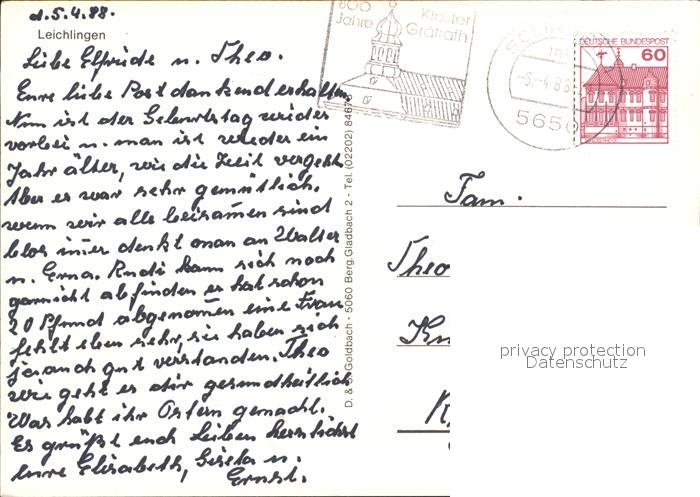 d. 5.4.88.
Leichlingen
Liebe Elfriede u. Theo.
Eure liebe Post dankend erhalten
Nun ist der Geburtstag wieder
vorbei u. man ist wieder ein
Jahr älter, wie die Zeit vergeht
Aber es war sehr gemütlich.
wenn wir alle beisamen sind
blos imer denkt man an Walter
u. Erna. Rudi kann sich noch
garnicht abfinden er hat schon
20 Pfund abgenomen eine Frau
fehlt eben sehr, sie haben sich
ja auch gut verstanden. Theo
wie geht es dir gesundheitlich
Was habt ihr Ostern gemacht.
Es grüßt euch Lieben herzlichst
Eure Elisabeth, Gisela u.
Ernst.
D. & S. Goldbach - 5060 Berg. Gladbach 2 - Tel. (02202)
800
Jahre
Kloster
Gräfrath
SOLINGEN
5650
DEUTSCHE BUNDESPOST
60
Fam.
Theo
privacy protection
Datenschutz